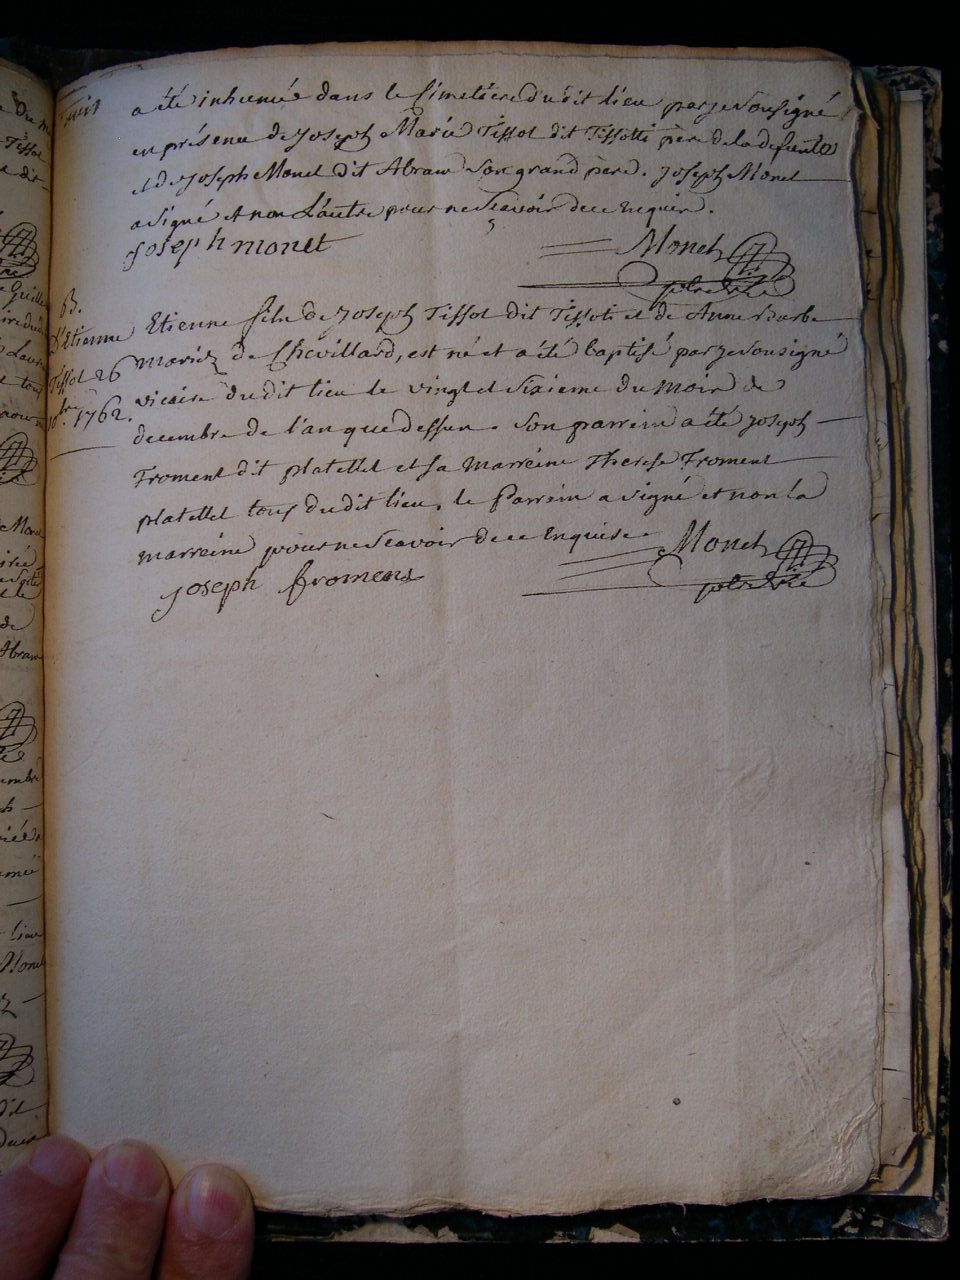 Suit
a été inhumée dans le Cimetière dudit lieu par je Sousigné
en présence de Joseph Marie Tissot dit Tissotti père de la defunte
et de Joseph Monet dit Abram Son grand père. Joseph Monet
a Signé et non L'autre pour ne Scavoir de ce Enquis.
Joseph monet
Monet
ptre
B.
d'Etienne
Tissot 26
10bre 1762.
Etienne fils de Joseph Tissot dit Tissoti et de Anne Barbe
Mariez de Chevillard, est né et a été baptisé par je Sousigné
vicaire dudit lieu le vingt et Sixieme du mois de
decembre de l'an que dessus. Son parrein a été Joseph
Froment dit platellet et Sa Marreine Therese Froment
platellet tous dudit lieu. le Parrein a Signé et non la
marreine pour ne Scavoir de ce Enquise.
Monet
ptre
joseph froment